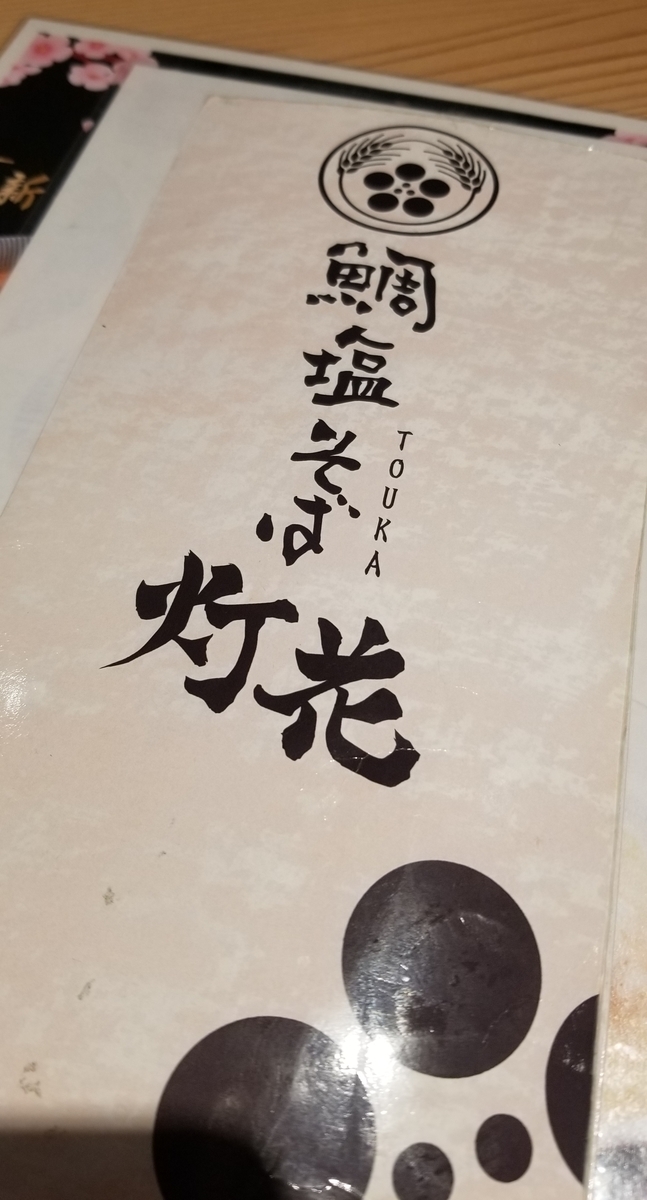 鯛塩そば
TOUKA
灯花
新